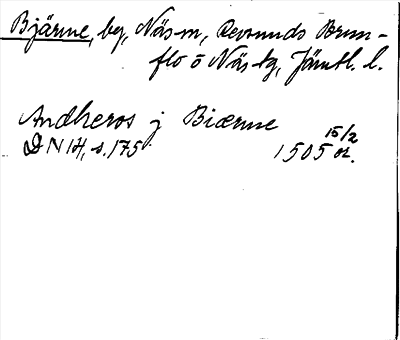 Bjärme, by, Näs sn, Revsunds Brun-
flo o Näs tg, Jämtl. l.
Andheros j Biærme
15/2
DN 14, s. 175 1505 or.